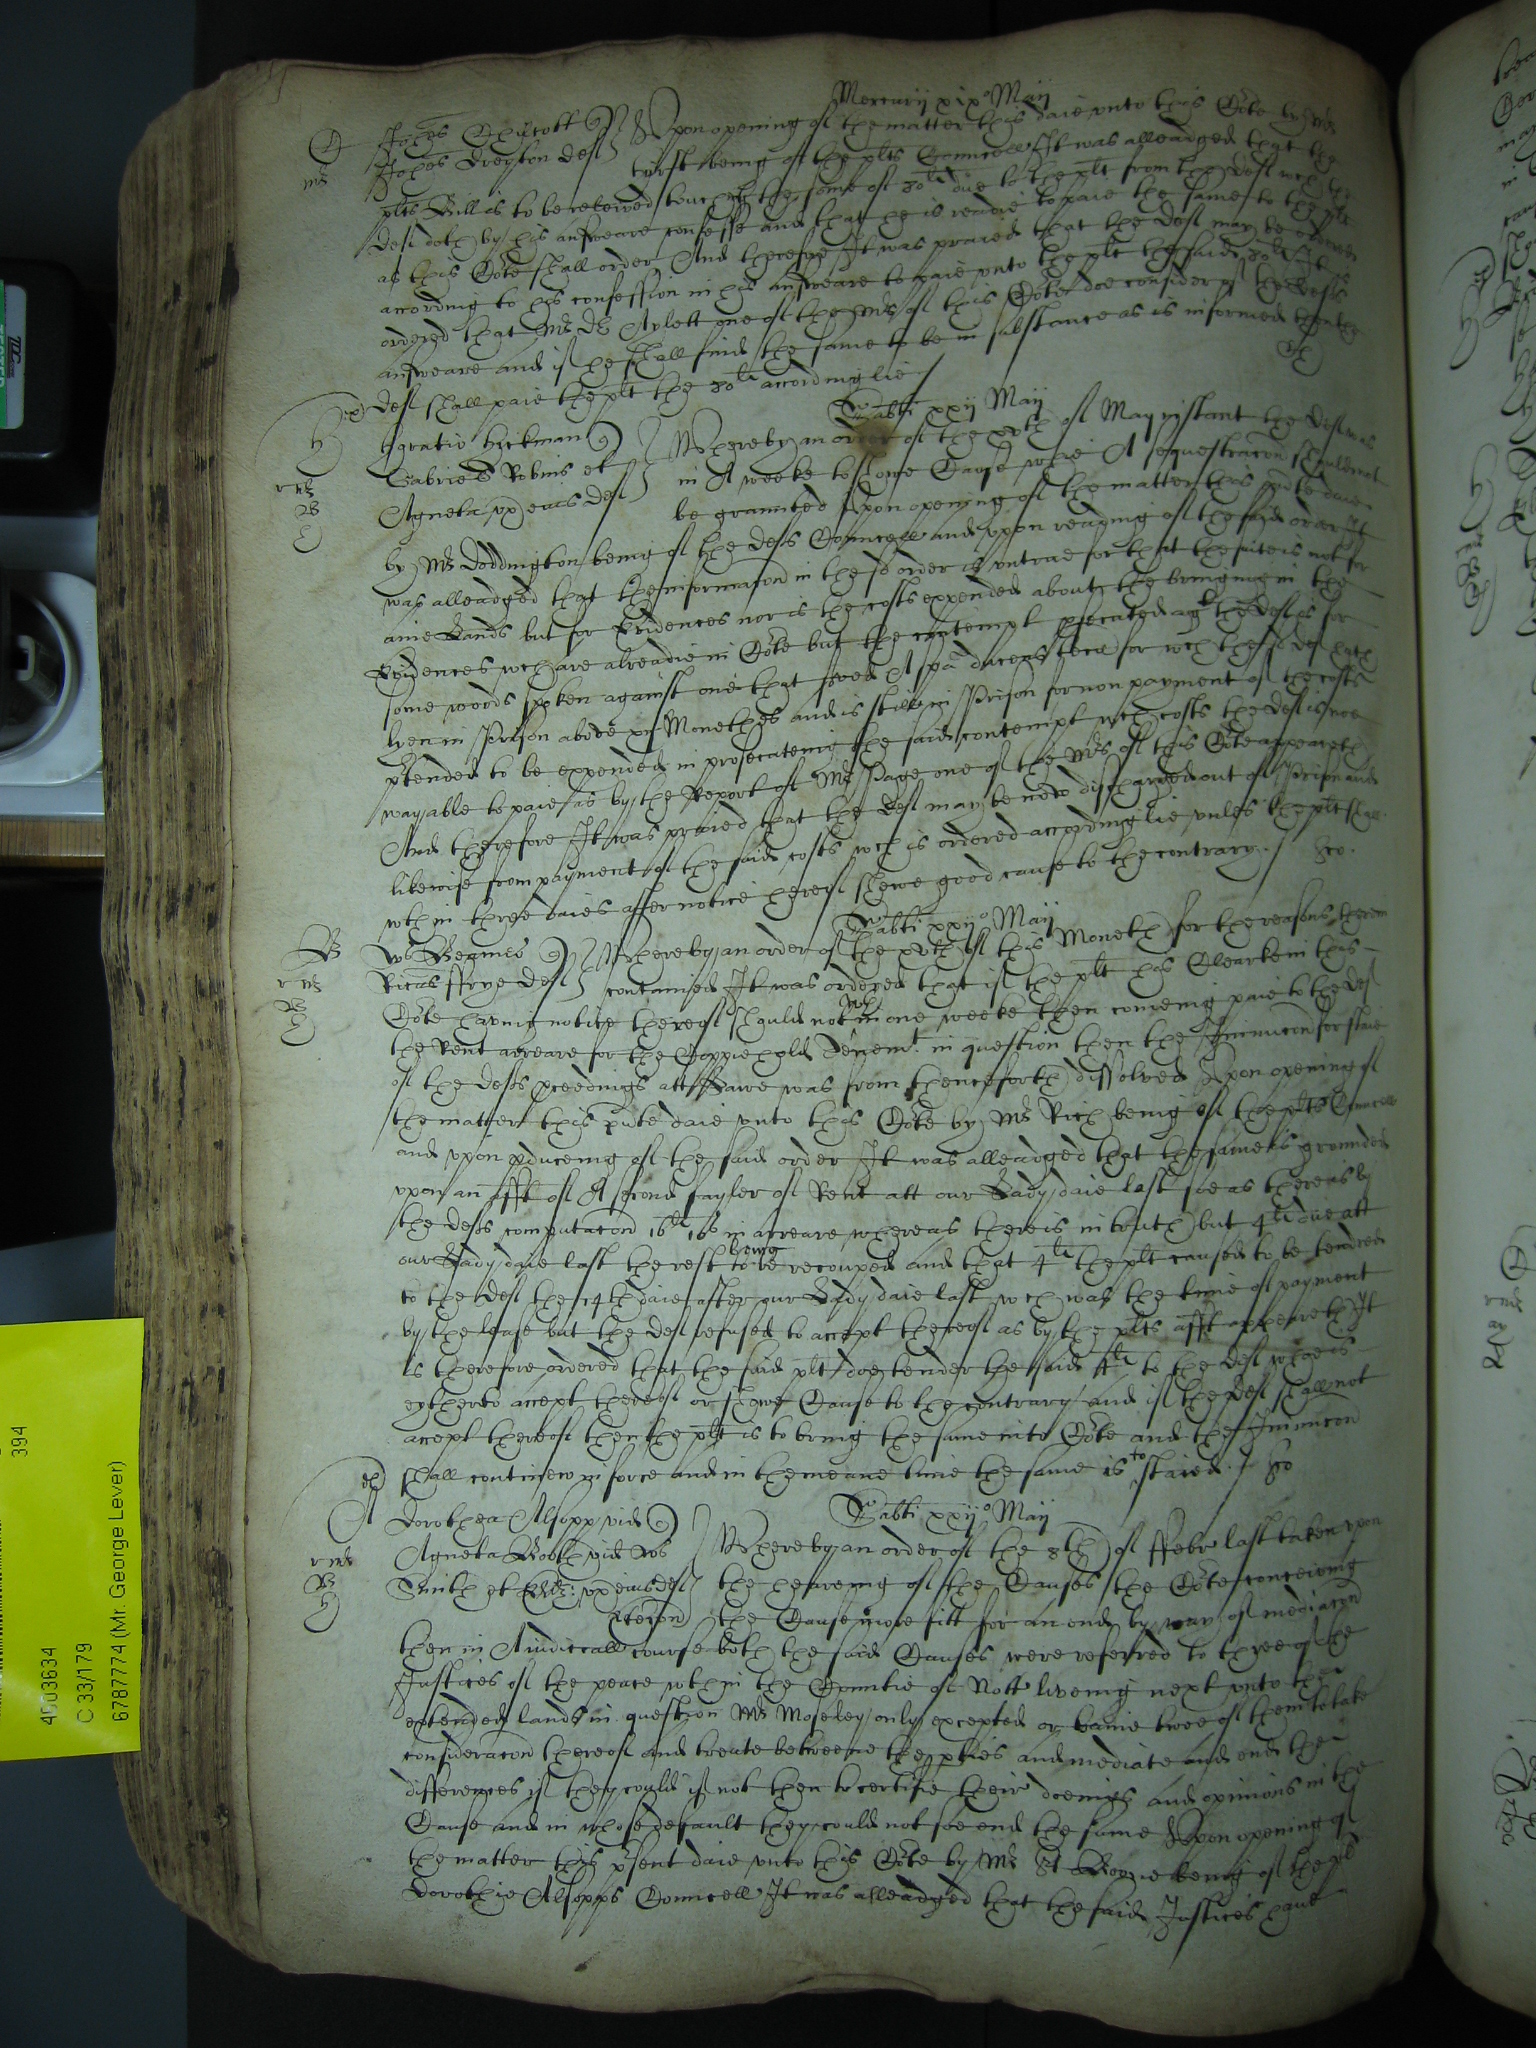 Mercurij xixo Maij
Q Johes Chilcott q Vpon opening of the matter this daie vnto this Corte by Mr
Johes Dreyton def Turst being of the plts Councell It was alleadged that the
plts Bill is to be releived touching the some of 30li due to the plt from the def wch the
def doth by his answeare confesse and that he is readie to paie the same to the plt
as this Corte shall order And therefore It was praied that the def may be ordered
according to his confession in his answeare to paie vnto the plt the said 30li It is
ordered that Mr Dr Aylett one of the Mrs of this Corte doe consider of the defts
answeare and if he shall find the same to be in substance as is informed then the
def shall paie the plt the 30li accordinglie /
Sabti xxij Maij
Horatio Hickman q Whereby an order of the xvth of May instant the def was
Gabriel Robins et in A weeke to showe Cause whie A sequestracon should not
Agneta vx eius def be graunted Vpon opening of the matter this pnte daie
by Mr Doddington being of the defts Councell and vpon reading of the said order It
was alleadged that the informacon in the sd order is vntrue for that the suite is not for
anie Lands but for Evidences nor is the costs expended about the bringing in the
Evidences wch are alreadie in Corte but the contempt psecuted agt the def is for
some words spoken against one that served A spa ducens tecu for wch the sd def hath
lyen in Prison above xij Monethes and is still in Prison for non payment of the costs
ptended to be expended in prosecuteing the said contempt wch costs the def is noe
way able to paie as by the Report of Mr Page one of the Mrs of this Corte appeareth
And therefore It was praied that the def may be now discharged out of Prison and
likewise from payment of the said costs wch is ordered accordinglie vnles the plt shall
wthin three daies after notice hereof shewe good cause to the contrary /
Sabti xxijo Maij
B Ws Beames q Whereby an order of the xvth of this Moneth for the reasons therein
Ricus ffrye def contained It was ordered that if the plt his Clearke in this
Corte having notice thereof should not wth in one weeke then comeing paie to the def
the Rent arreare for the Coppiehold Tenemt. in question then the Iniunccon for staie
of the defts pceedings att Lawe was from thenceforth dissolved Vpon opening of
the matter this pnte daie vnto this Corte by Mr Rich being of the plts Councell
and vpon pduceing of the said order It was alleadged that the same is grounded
vpon an afft of A second fayler of Rent att our Lady daie last soe as there is by
the defts computacon 16li 16s in arreare whereas there is in truth but 4li due att
our Lady daie last the rest to be being recouped and that 4li the plt caused to be tendred
to the def the 14th daie after our Lady daie last wch was the time of payment
by the lease but the def refused to accept thereof as by the plts afft appeareth It
is therefore ordered that the said plt doe tender the said 4li to the def whoe is
eyther to accept thereof or shewe Cause to the contrary and if the def shall not
accept thereof then the plt is to bring the same into Corte and the Iniunccon
shall continew in force and in the meane time the same is to staied. /
Sabti xxijo Maij
A Dorothea Alsopp vid q
Agneta Booth vid Ws Whereby an order of the 8th of ffebr last taken vpon
Smith et Eliz: vx eius def the heareing of the Causes the Corte conceiving
et econ the Cause more fitt for an end by way of mediacon
then in A iudiciall course both the said Causes were referred to three of the
Justices of the peace wthin the Countie of Nott liveing next vnto the
extended lands in question Mr Moseley only excepted or to anie twoe of them to take
consideracon thereof and treate betweene the pties and mediate and end the
differences if they could if not then to certifie their doeings and opinions in the
Cause and in whose default they could not soe end the same Vpon opening of
the matter this psent daie vnto this Corte by Mr being of the plt
Dorothie Alsopps Councell It was alleadged that the said Justices have
394
4003634
C 33/179
6787774 (Mr. George Lever)